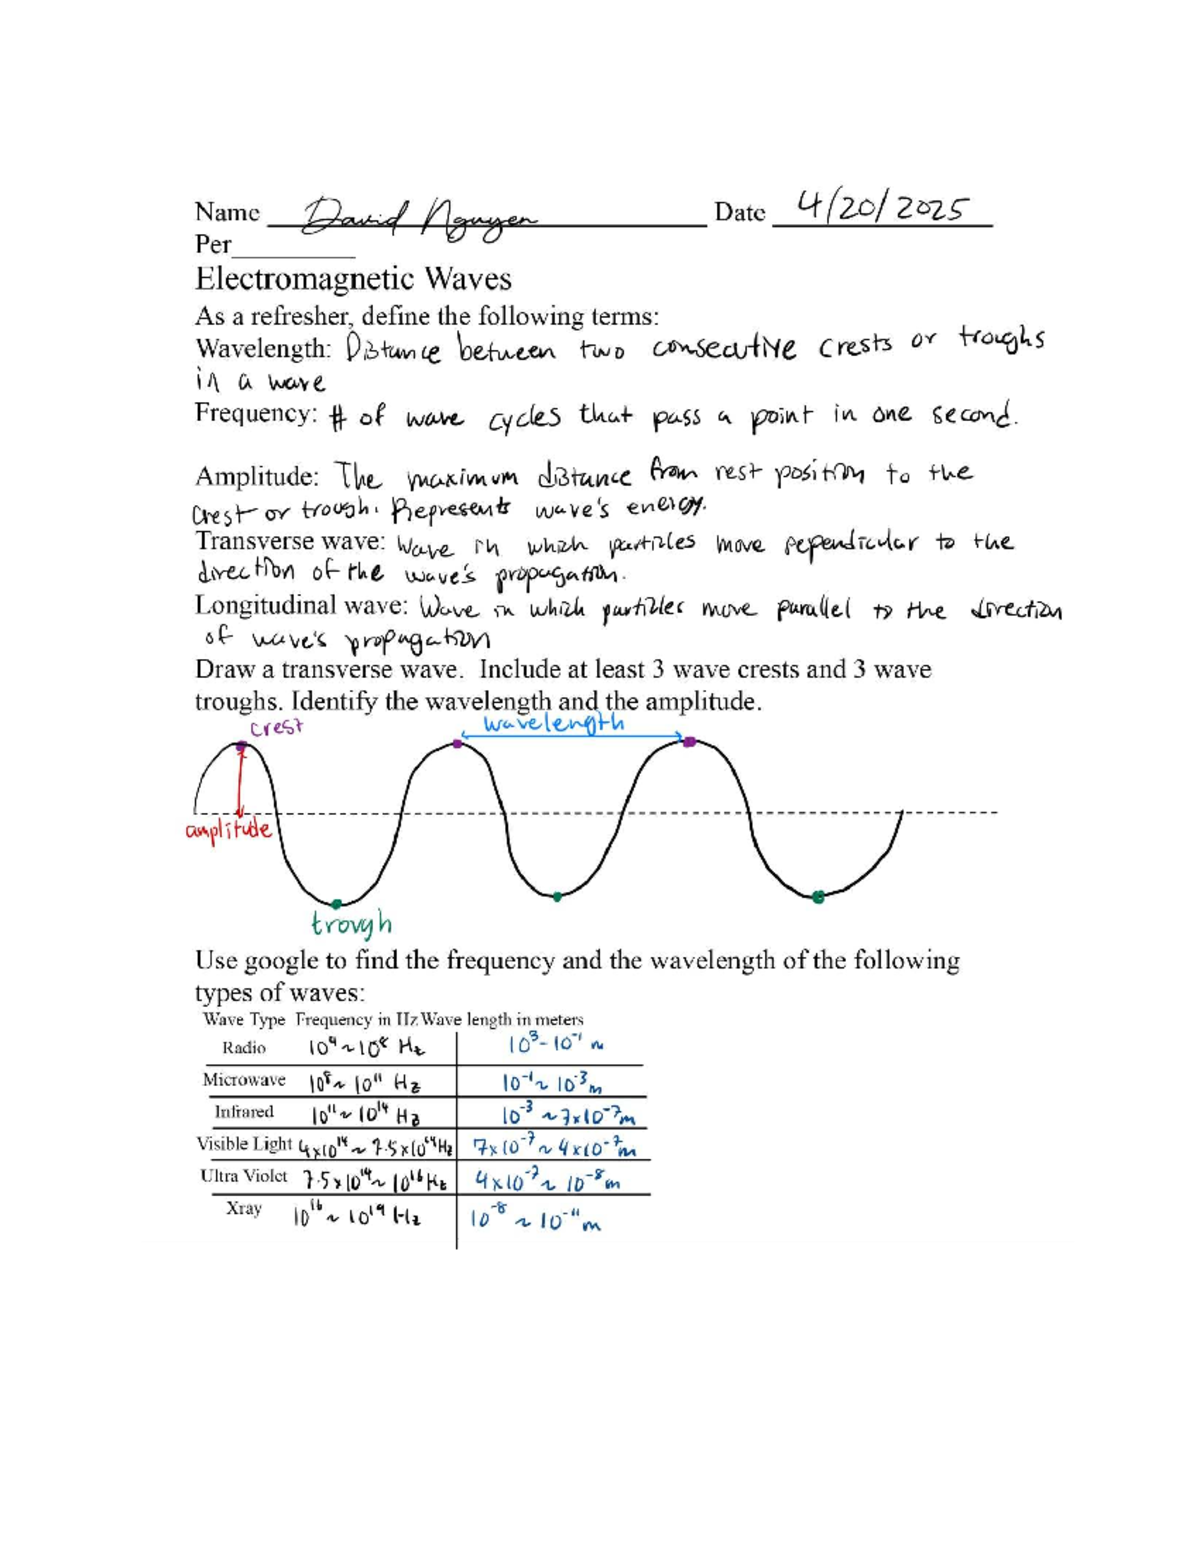 Name David Nguyen Date 4/20/2025
Per
Electromagnetic Waves
As a refresher, define the following terms:
Wavelength: Distance between two consecutive crests or troughs
in a wave
Frequency: # of wave cycles that pass a point in one second.
Amplitude: The maximum distance from rest position to the
crest or trough. Represents wave's energy.
Transverse wave: Wave in which particles move perpendicular to the
direction of the wave's propagation.
Longitudinal wave: Wave in which particles move parallel to the direction
of wave's propagation
Draw a transverse wave. Include at least 3 wave crests and 3 wave
troughs. Identify the wavelength and the amplitude.
crest wavelength
amplitude
trough
Use google to find the frequency and the wavelength of the following
types of waves:
Wave Type Frequency in Hz Wave length in meters
Radio 10⁴ ~ 10⁸ Hz 10³ - 10⁻¹ m
Microwave 10⁸ ~ 10¹¹ Hz 10⁻¹ ~ 10⁻³ m
Infrared 10¹¹ ~ 10¹⁴ Hz 10⁻³ ~ 7x10⁻⁷ m
Visible Light 4x10¹⁴ ~ 7.5x10¹⁴ Hz 7x10⁻⁷ ~ 4x10⁻⁷ m
Ultra Violet 7.5x10¹⁴ ~ 10¹⁶ Hz 4x10⁻⁷ ~ 10⁻⁸ m
Xray 10¹⁶ ~ 10¹⁹ Hz 10⁻⁸ ~ 10⁻¹¹ m